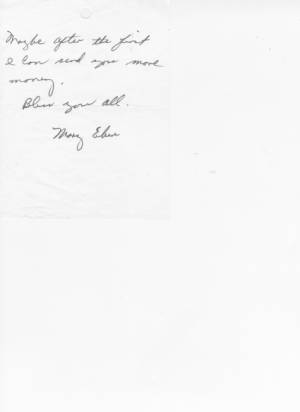 Maybe after the first
I can send you more
money.
Bless you all.
Mary